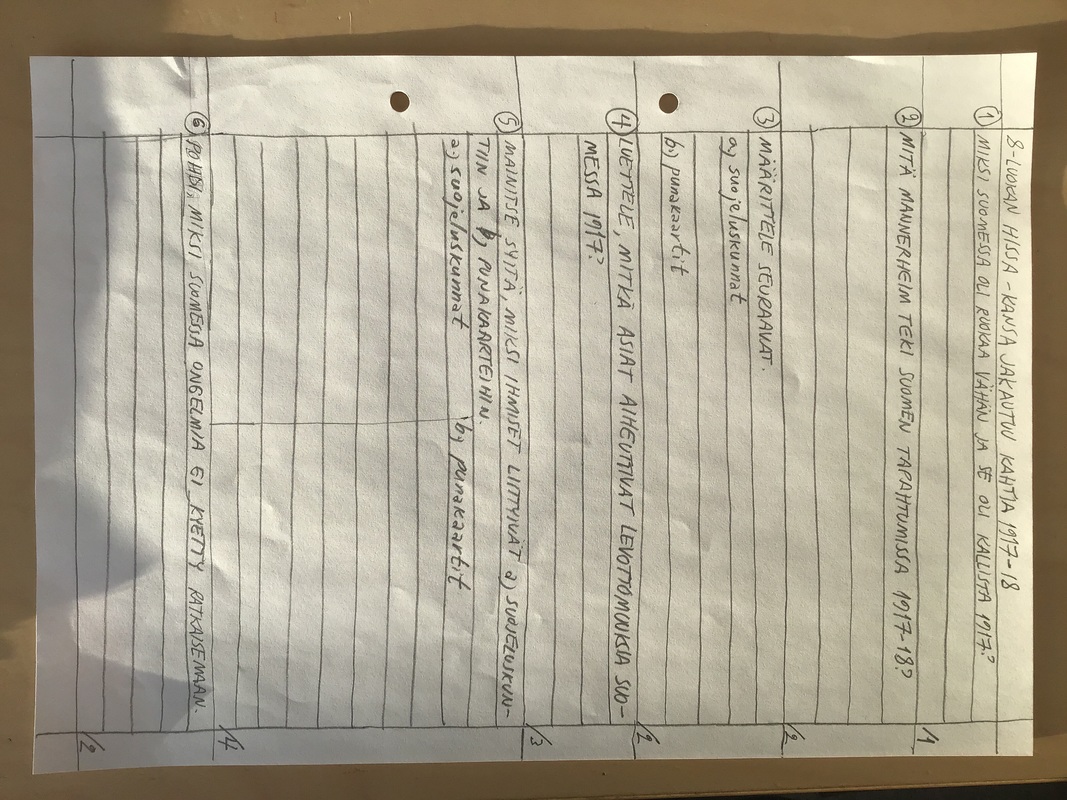 8-LUOKAN HISSA - KANSA JAKAUTUU KAHTIA 1917-18
① MIKSI SUOMESSA OLI RUOKAA VÄHÄN JA SE OLI KALLISTA 1917?
/1
② MITÄ MANNERHEIM TEKI SUOMEN TAPAHTUMISSA 1917-18?
/2
③ MÄÄRITTELE SEURAAVAT.
a) suojeluskunnat
b) punakaartit
/2
④ LUETTELE, MITKÄ ASIAT AIHEUTTIVAT LEVOTTOMUUKSIA SUO-
MESSA 1917?
/3
⑤ MAINITSE SYITÄ, MIKSI IHMISET LIITTYIVÄT a) SUOJELUSKUN-
TIIN JA b) PUNAKAARTEIHIN.
a) suojeluskunnat b) punakaartit
/4
⑥ POHDI, MIKSI SUOMESSA ONGELMIA EI KYETTY RATKAISEMAAN.
/2